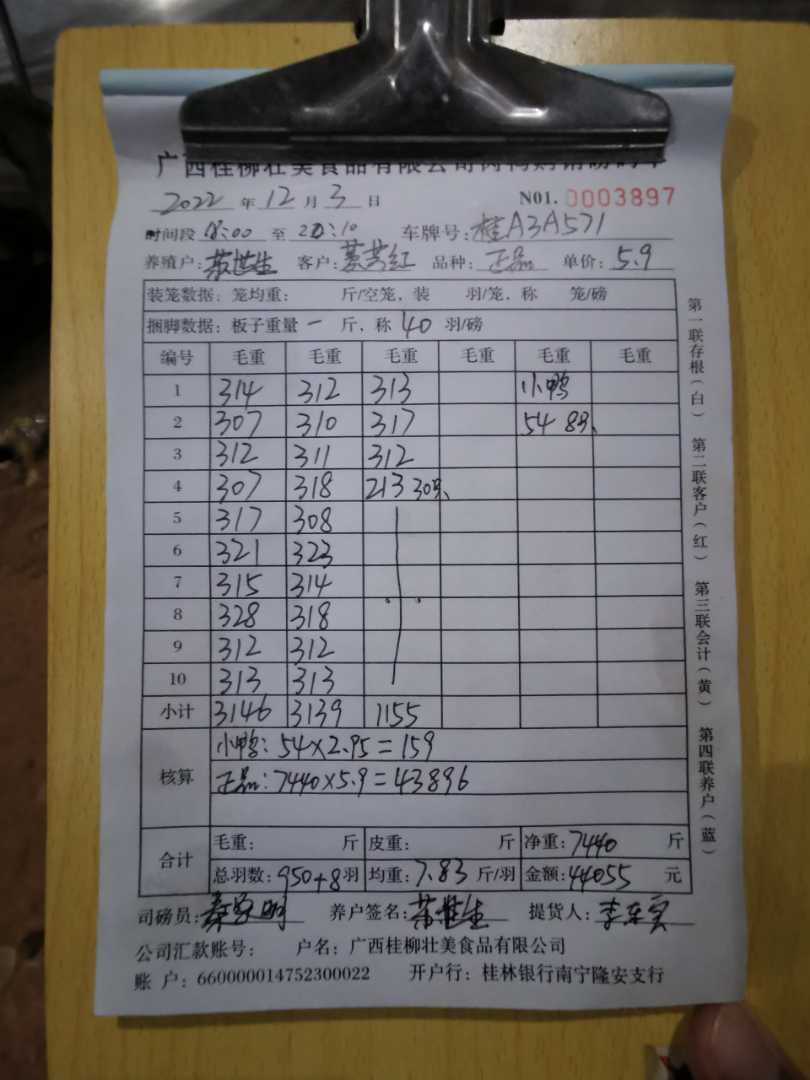 广西桂柳壮美食品有限公司肉鸭购销磅码单
2022 年 12 月 3 日 N01. 0003897
时间段 18:00 至 20:10 车牌号: 桂A3A571
养殖户: 客户: 品种: 正品 单价: 5.9
装笼数据: 笼均重: 斤/空笼, 装 羽/笼, 称 笼/磅
捆脚数据: 板子重量 一 斤, 称 40 羽/磅
编号 毛重 毛重 毛重 毛重 毛重 毛重
1 314 312 313 小鸭
2 307 310 317 54 8只、
3 312 311 312
4 307 318 213 30只、
5 317 308
6 321 323
7 315 314
8 328 318
9 312 312
10 313 313
小计 3146 3139 1155
核算 小鸭: 54×2.95=159
正品: 7440×5.9=43896
合计 毛重: 斤 皮重: 斤 净重: 7440 斤
总羽数: 950+8 羽 均重: 7.83 斤/羽 金额: 44055 元
司磅员: 养户签名: 提货人:
公司汇款账号: 户名: 广西桂柳壮美食品有限公司
账 户: 660000014752300022 开户行: 桂林银行南宁隆安支行
第一联存根(白) 第二联客户(红) 第三联会计(黄) 第四联养户(蓝)